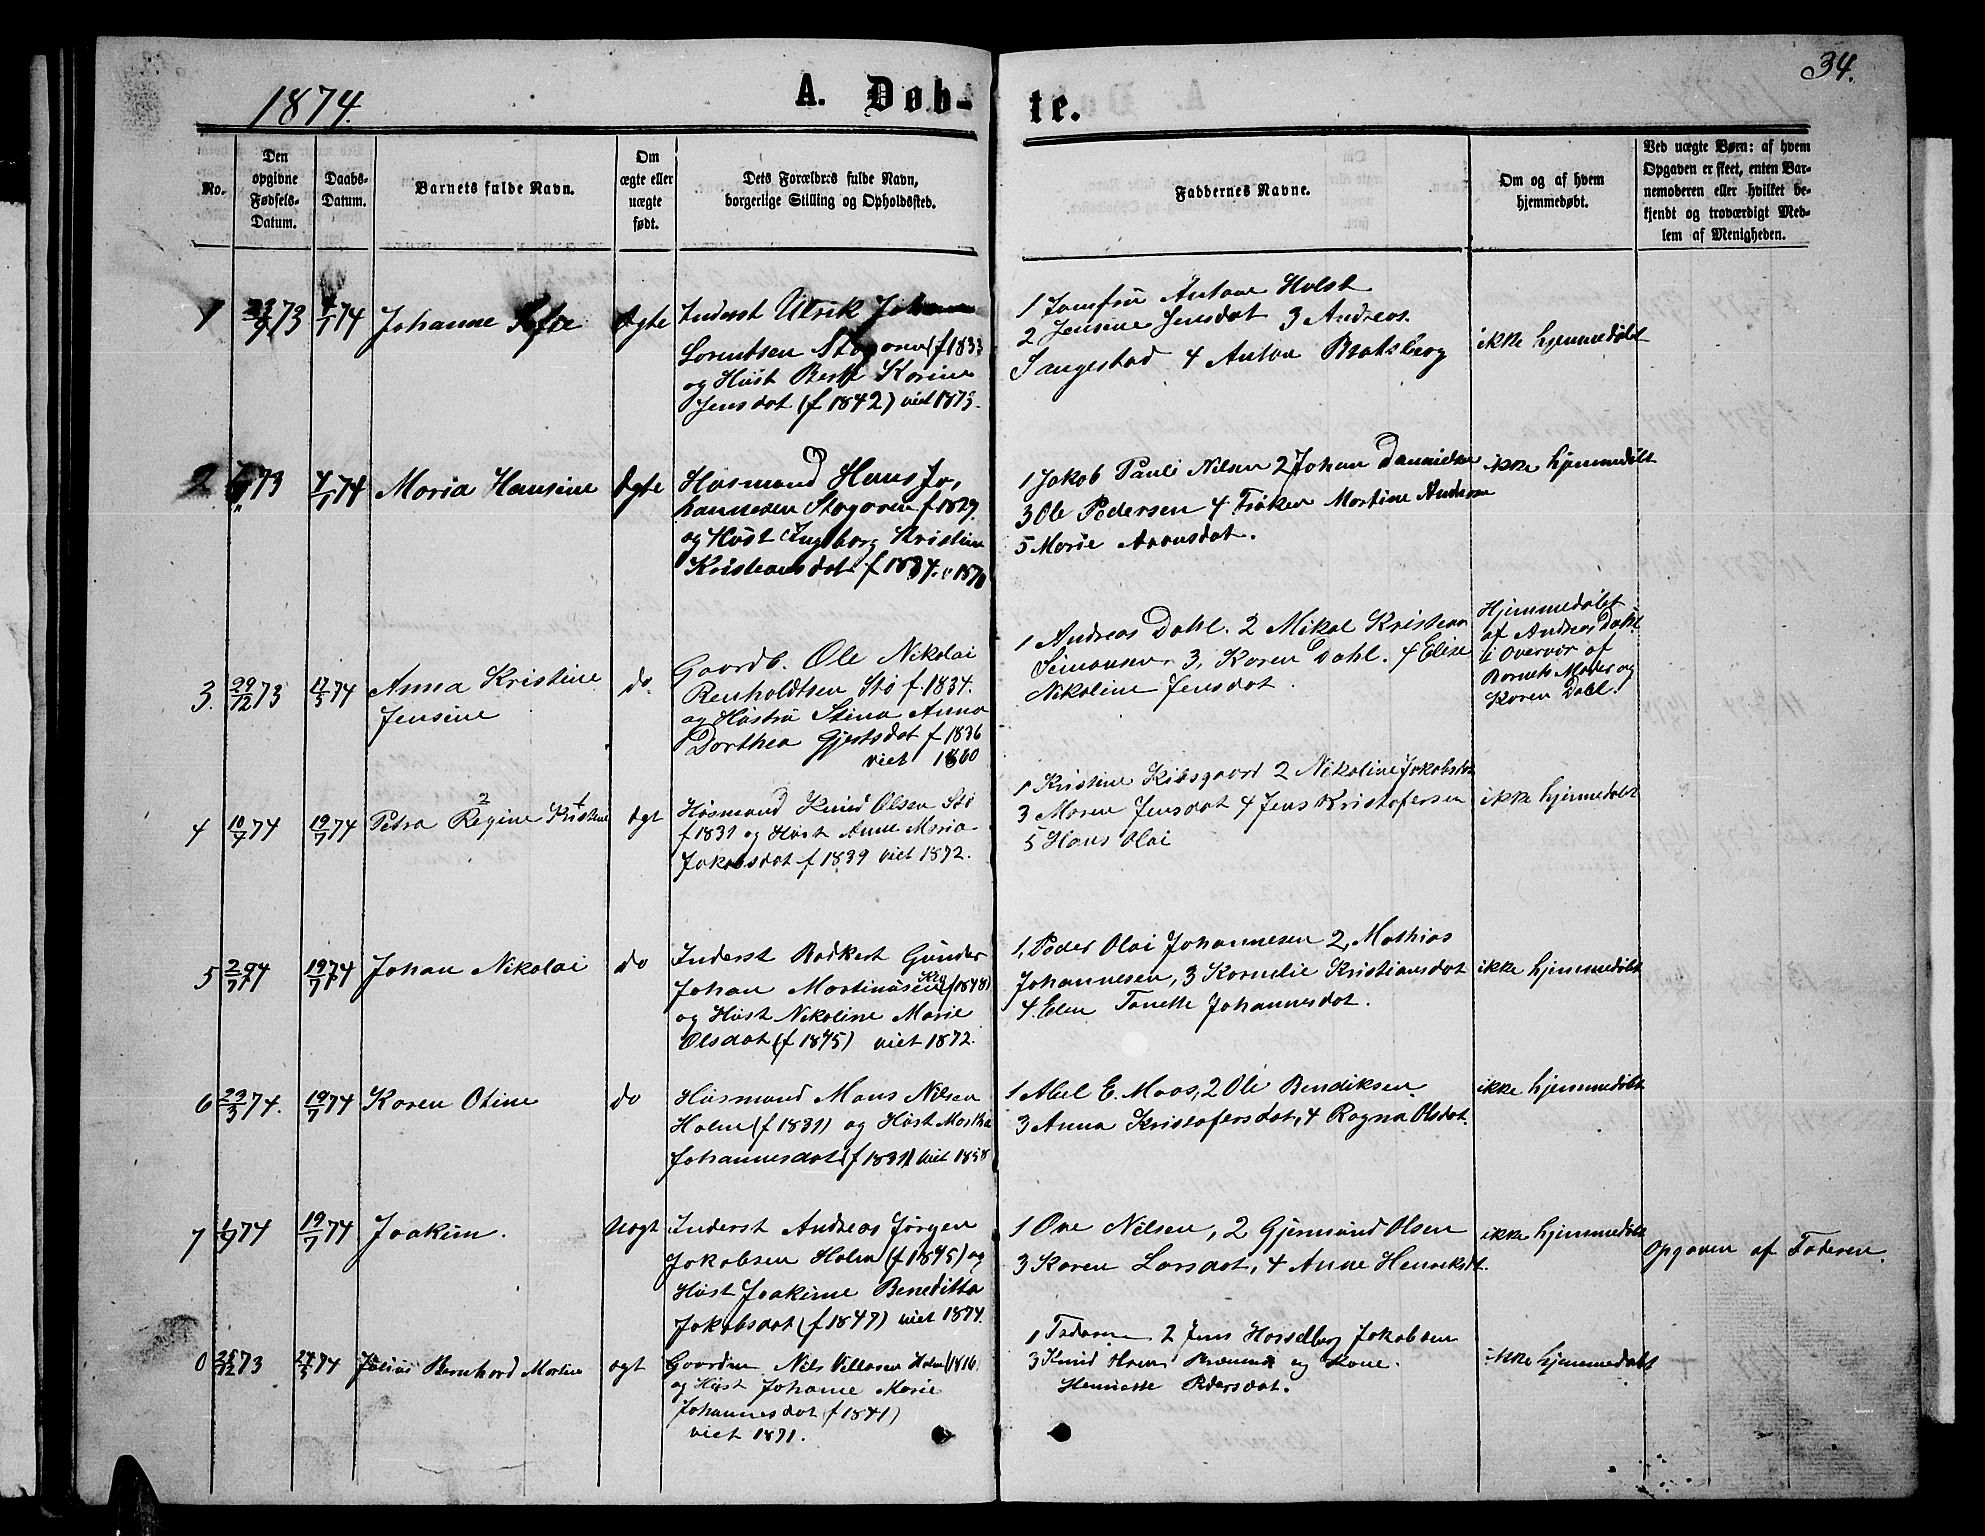 34.
1874.
A. Døb-te.
No.
Den opgivne Fødsels-Datum.
Daabs-Datum.
Barnets fulde Navn.
Om ægte eller uægte født.
Dets Forældres fulde Navn, borgerlige Stilling og Opholdssted.
Faddernes Navne.
Om og af hvem hjemmedøbt.
Ved uægte Børn: af hvem Opgaven er skeet, enten Barnemoderen eller hvilket bekjendt og troværdigt Medlem af Menigheden.
1 73 74 Johanne Ægte
Inderst Ulrik
Lorentsen (f 1833
og Hust Karine
Jensdat (f 1842) viet 1873.
1 Jomfru Antone Holst
2 Jensine Jensdat 3 Andreas
Sangestad 4 Anton Bratsberg
ikke hjemmedøbt
2 73 4/1 74 Maria Hansine Ægte
Husmand Hans Jo,
hannesen f 1829
og Hust Ingeborg Kristine
Kristiansdat f 1834. v 1870
1 Jakob Pauli Nilsen 2 Johan Danielsen
3 Ole Pedersen 4 Martine Andersen
5 Marie Aronsdat.
ikke hjemmedøbt
3. 29/12 73 17/5 74 Anna Kristine
Jensine
do.
Gaardb. Ole Nikolai
Renholdtsen Stø f. 1834.
og Hustru Stina Anna
Dorthea Gjertsdat f 1836
viet 1860
1 Andreas Dahl. 2 Mikal Kristian
Simonsen 3, Karen Dahl. 4 Elise
Nikoline Jensdat.
Hjemmedøbt
af Andreas Dahl
i Overvær af
Barnets Moder og
Karen Dahl.
4 10/7 74 19/7 74 Petra Regine Kristine ægt
Husmand Knud Olsen Stø
f 1831 og Hust Anne Maria
Jakobsdat f 1839 viet 1872.
1 Kristine Kibsgaard 2 Nikoline Jakobsdat
3 Maren Jensdat 4 Jens Kristofersen
5 Hans Olai
ikke hjemmedøbt
5 74 19/7 74 Johan Nikolai do
Inderst Gunder
Johan Martinusen (1848)
og Hust Nikoline Marie
Olsdat (f 1845) viet 1872.
1, Peder Olai Johannesen 2, Mathias
Johannesen, 3 Kornelie Kristiansdat
4. Elen Tanette Johannesdat.
ikke hjemmedøbt
6 29/3 74. 19/7 74 Karen Otine do
Husmand Mons Nilsen
Holm (f 1831) og Hust Martha
Johannesdat (f 1831) viet 1858
1 Abel E. Moos, 2 Ole Bendiksen
3 Anna Kristofersdat, 4 Ragna Olsdat.
ikke hjemmedøbt
7 74 19/7 74 Joakim. Uægt
Inderst Andreas Jørgen
Jakobsen Holm (f 1845) og
Hust Joakime Beneditta
Jakobsdat (f 1847) viet 1874.
1 Ove Nilsen, 2 Gjermund Olsen
3 Karen Larsdat, 4 Anne Henriksdt.
ikke hjemmedøbt
Opgaven af Faderen.
73 74 Julius Bernhard Martin ægt
Gaardm. Nils Holm (1816)
og Hust Johane Marie
Johannesdat (f 1841)
viet 1871.
1 Faderen 2 Jens Jakobsen
3 Knud og Kone
Henriette Pedersdat.
ikke hjemmedøbt